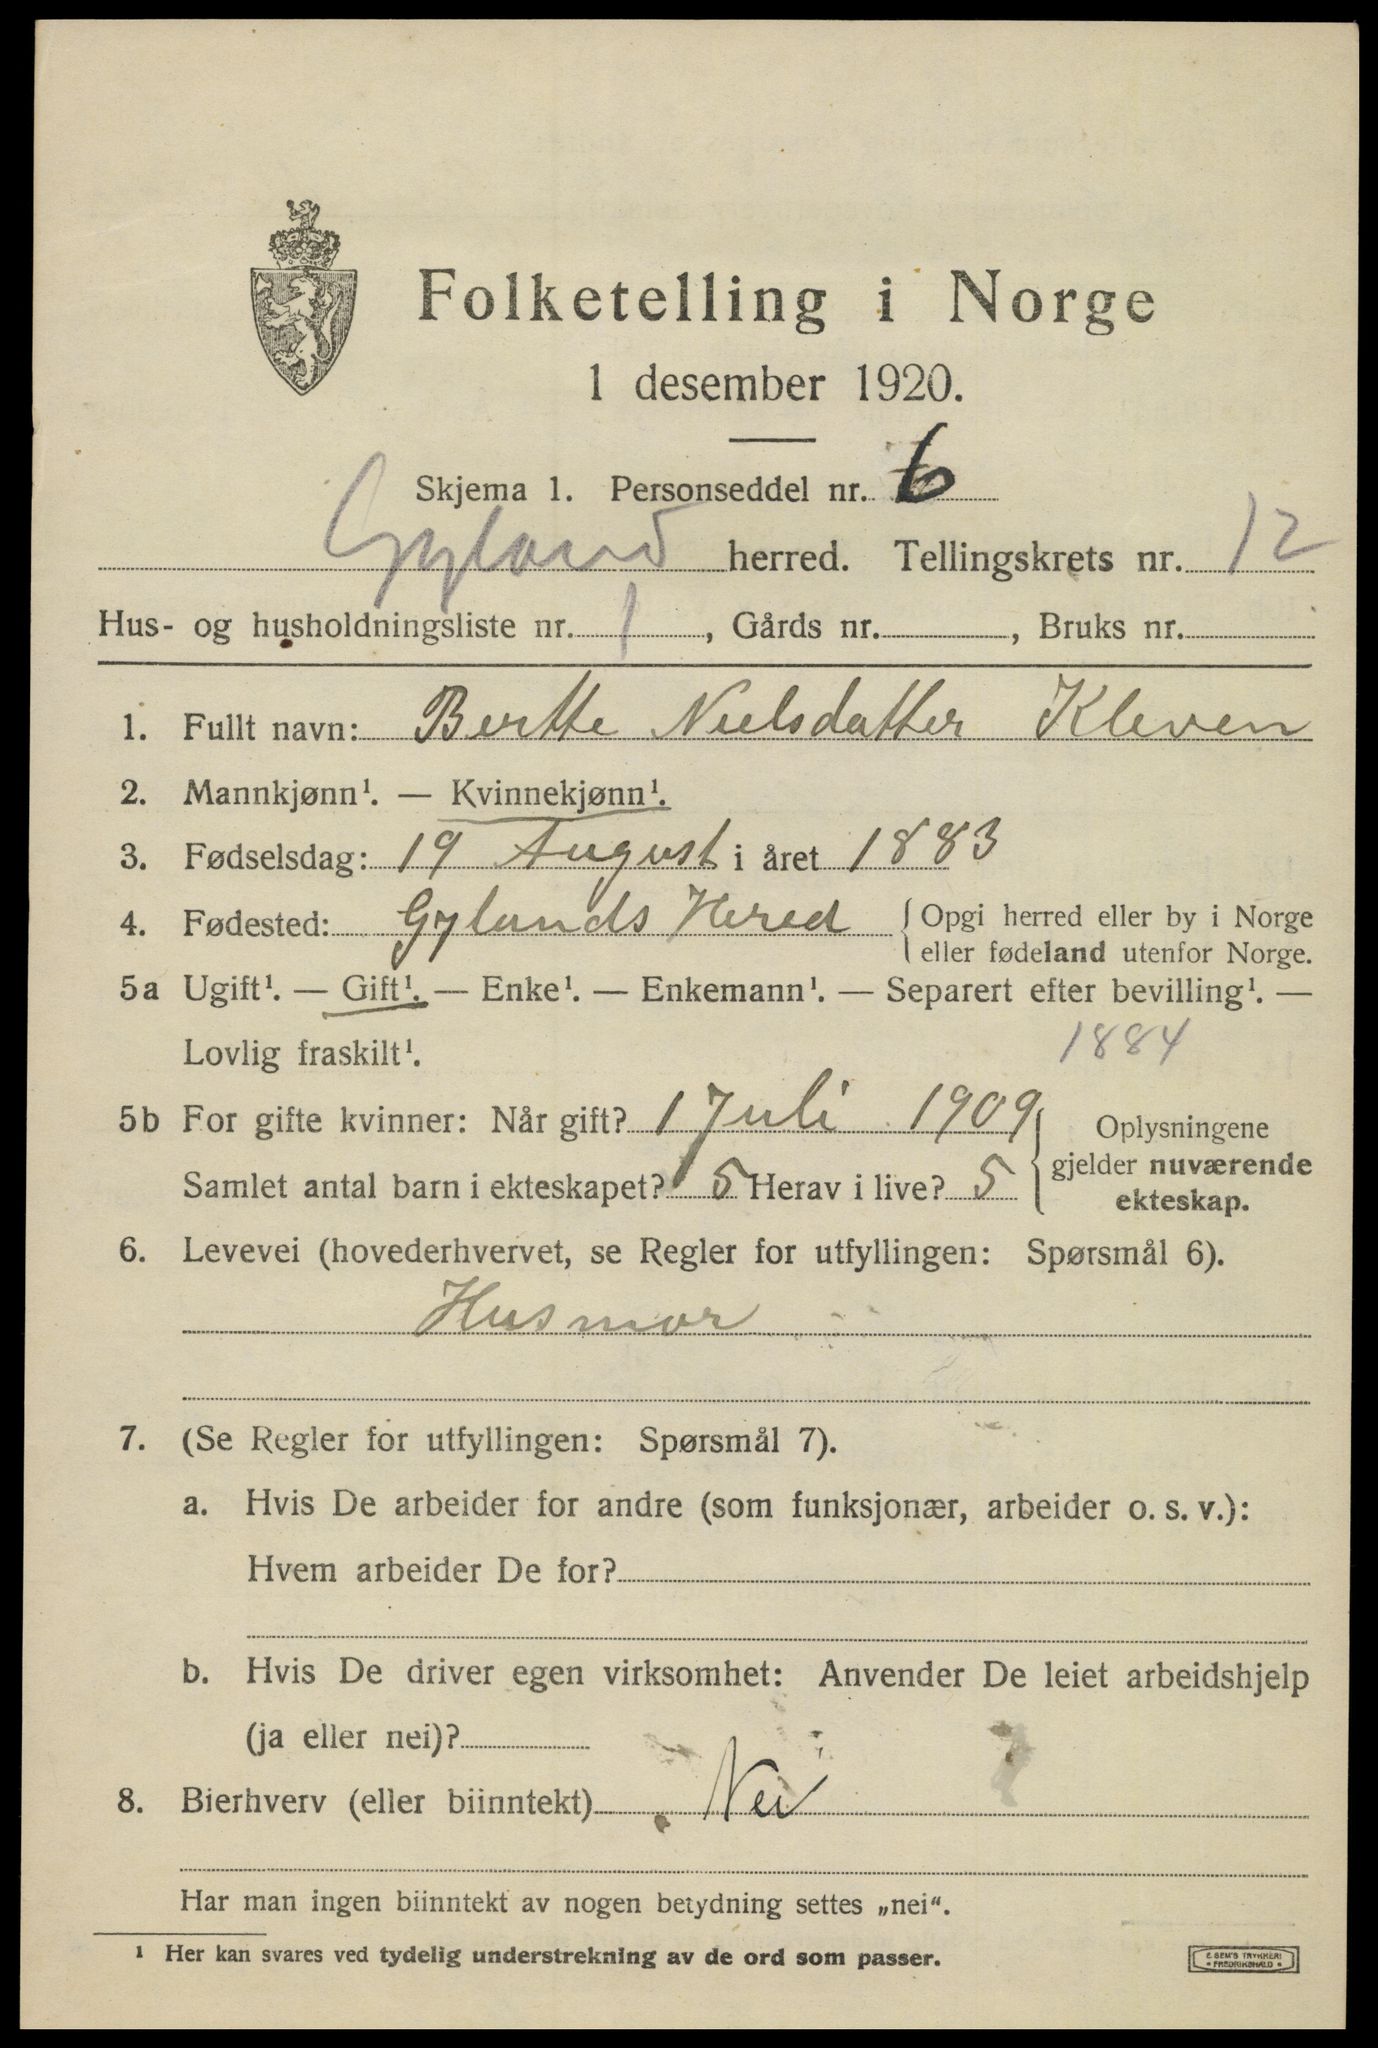 Folketelling i Norge
1 desember 1920.
Skjema 1. Personseddel nr. 6
Gyland herred. Tellingskrets nr. 12
Hus- og husholdningsliste nr. 1, Gårds nr. , Bruks nr.
1. Fullt navn: Berthe Nielsdatter Kleven
2. Mannkjønn¹. — Kvinnekjønn¹.
3. Fødselsdag: 19 August i året 1883
4. Fødested: Gylands Hered { Opgi herred eller by i Norge
eller fødeland utenfor Norge.
5a Ugift¹. — Gift¹. — Enke¹. — Enkemann¹. — Separert efter bevilling¹. —
Lovlig fraskilt¹. 1884
5b For gifte kvinner: Når gift? 1 Juli 1909 { Oplysningene
gjelder nuværende
ekteskap.
Samlet antal barn i ekteskapet? 5 Herav i live? 5
6. Levevei (hovederhvervet, se Regler for utfyllingen: Spørsmål 6).
Husmor
7. (Se Regler for utfyllingen: Spørsmål 7).
a. Hvis De arbeider for andre (som funksjonær, arbeider o. s. v.):
Hvem arbeider De for?
b. Hvis De driver egen virksomhet: Anvender De leiet arbeidshjelp
(ja eller nei)?
8. Bierhverv (eller biinntekt) Nei
Har man ingen biinntekt av nogen betydning settes „nei“.
¹ Her kan svares ved tydelig understrekning av de ord som passer.
E SEM'S TRYKKERI
• FREDRIKSHALD •